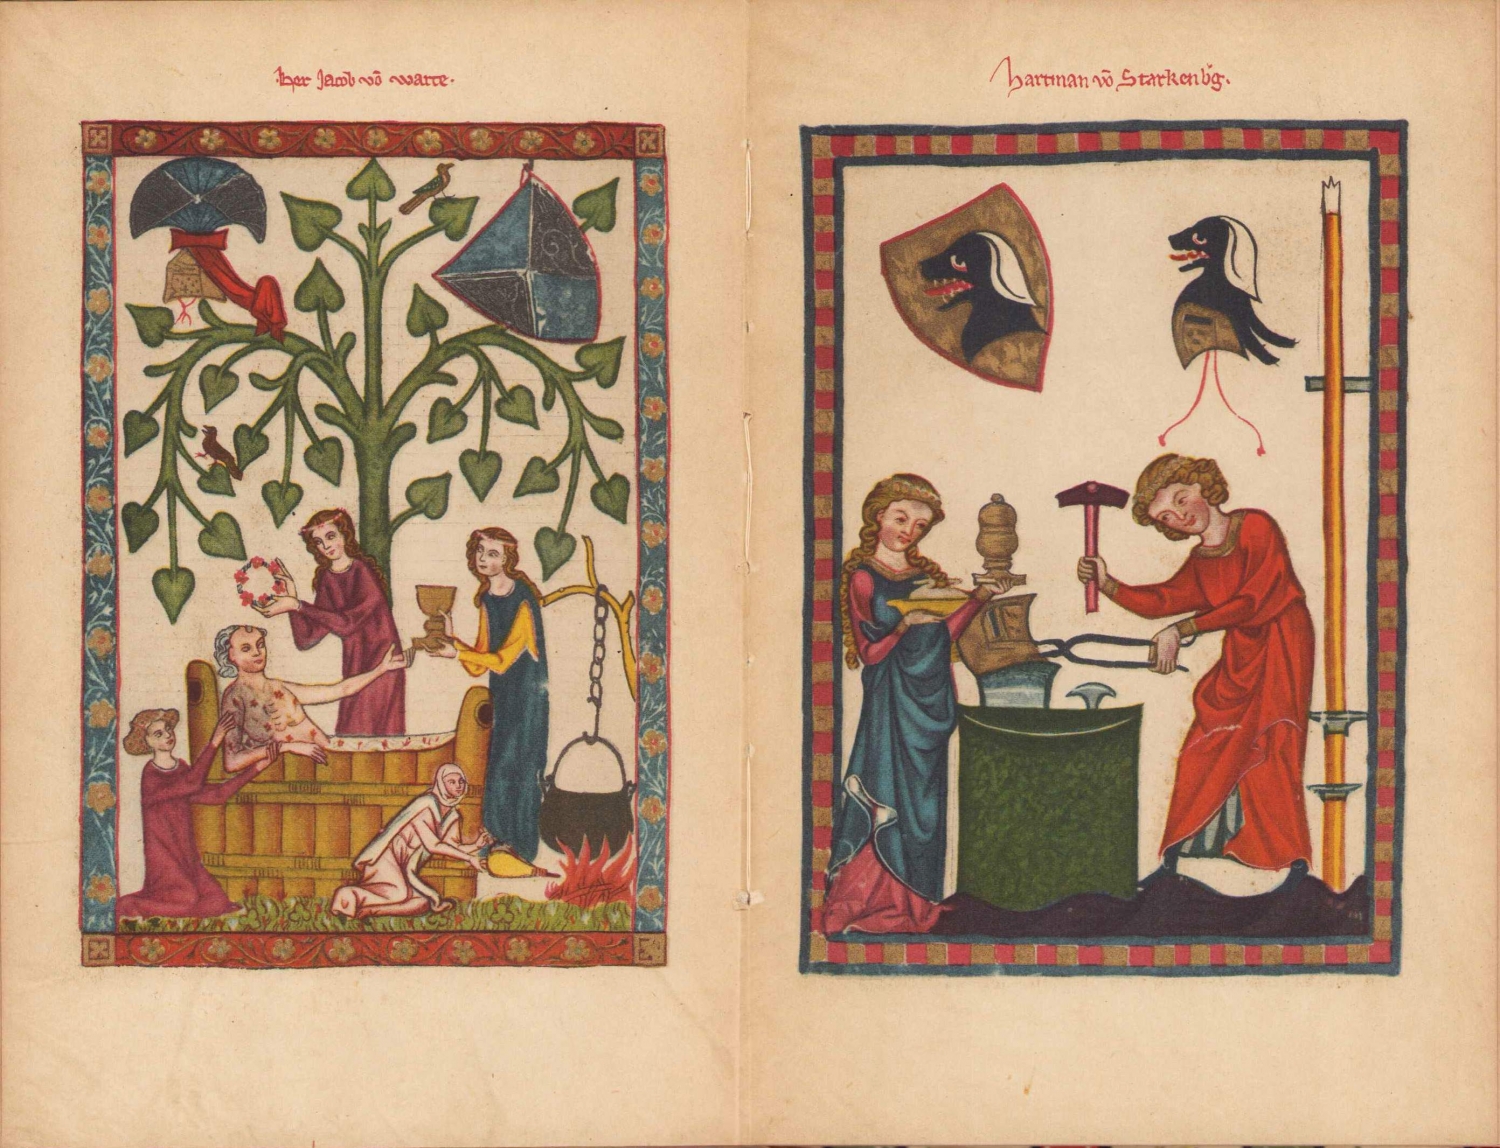 ·her Jacob vō warte·
Hartman vō Starkenb̄g.